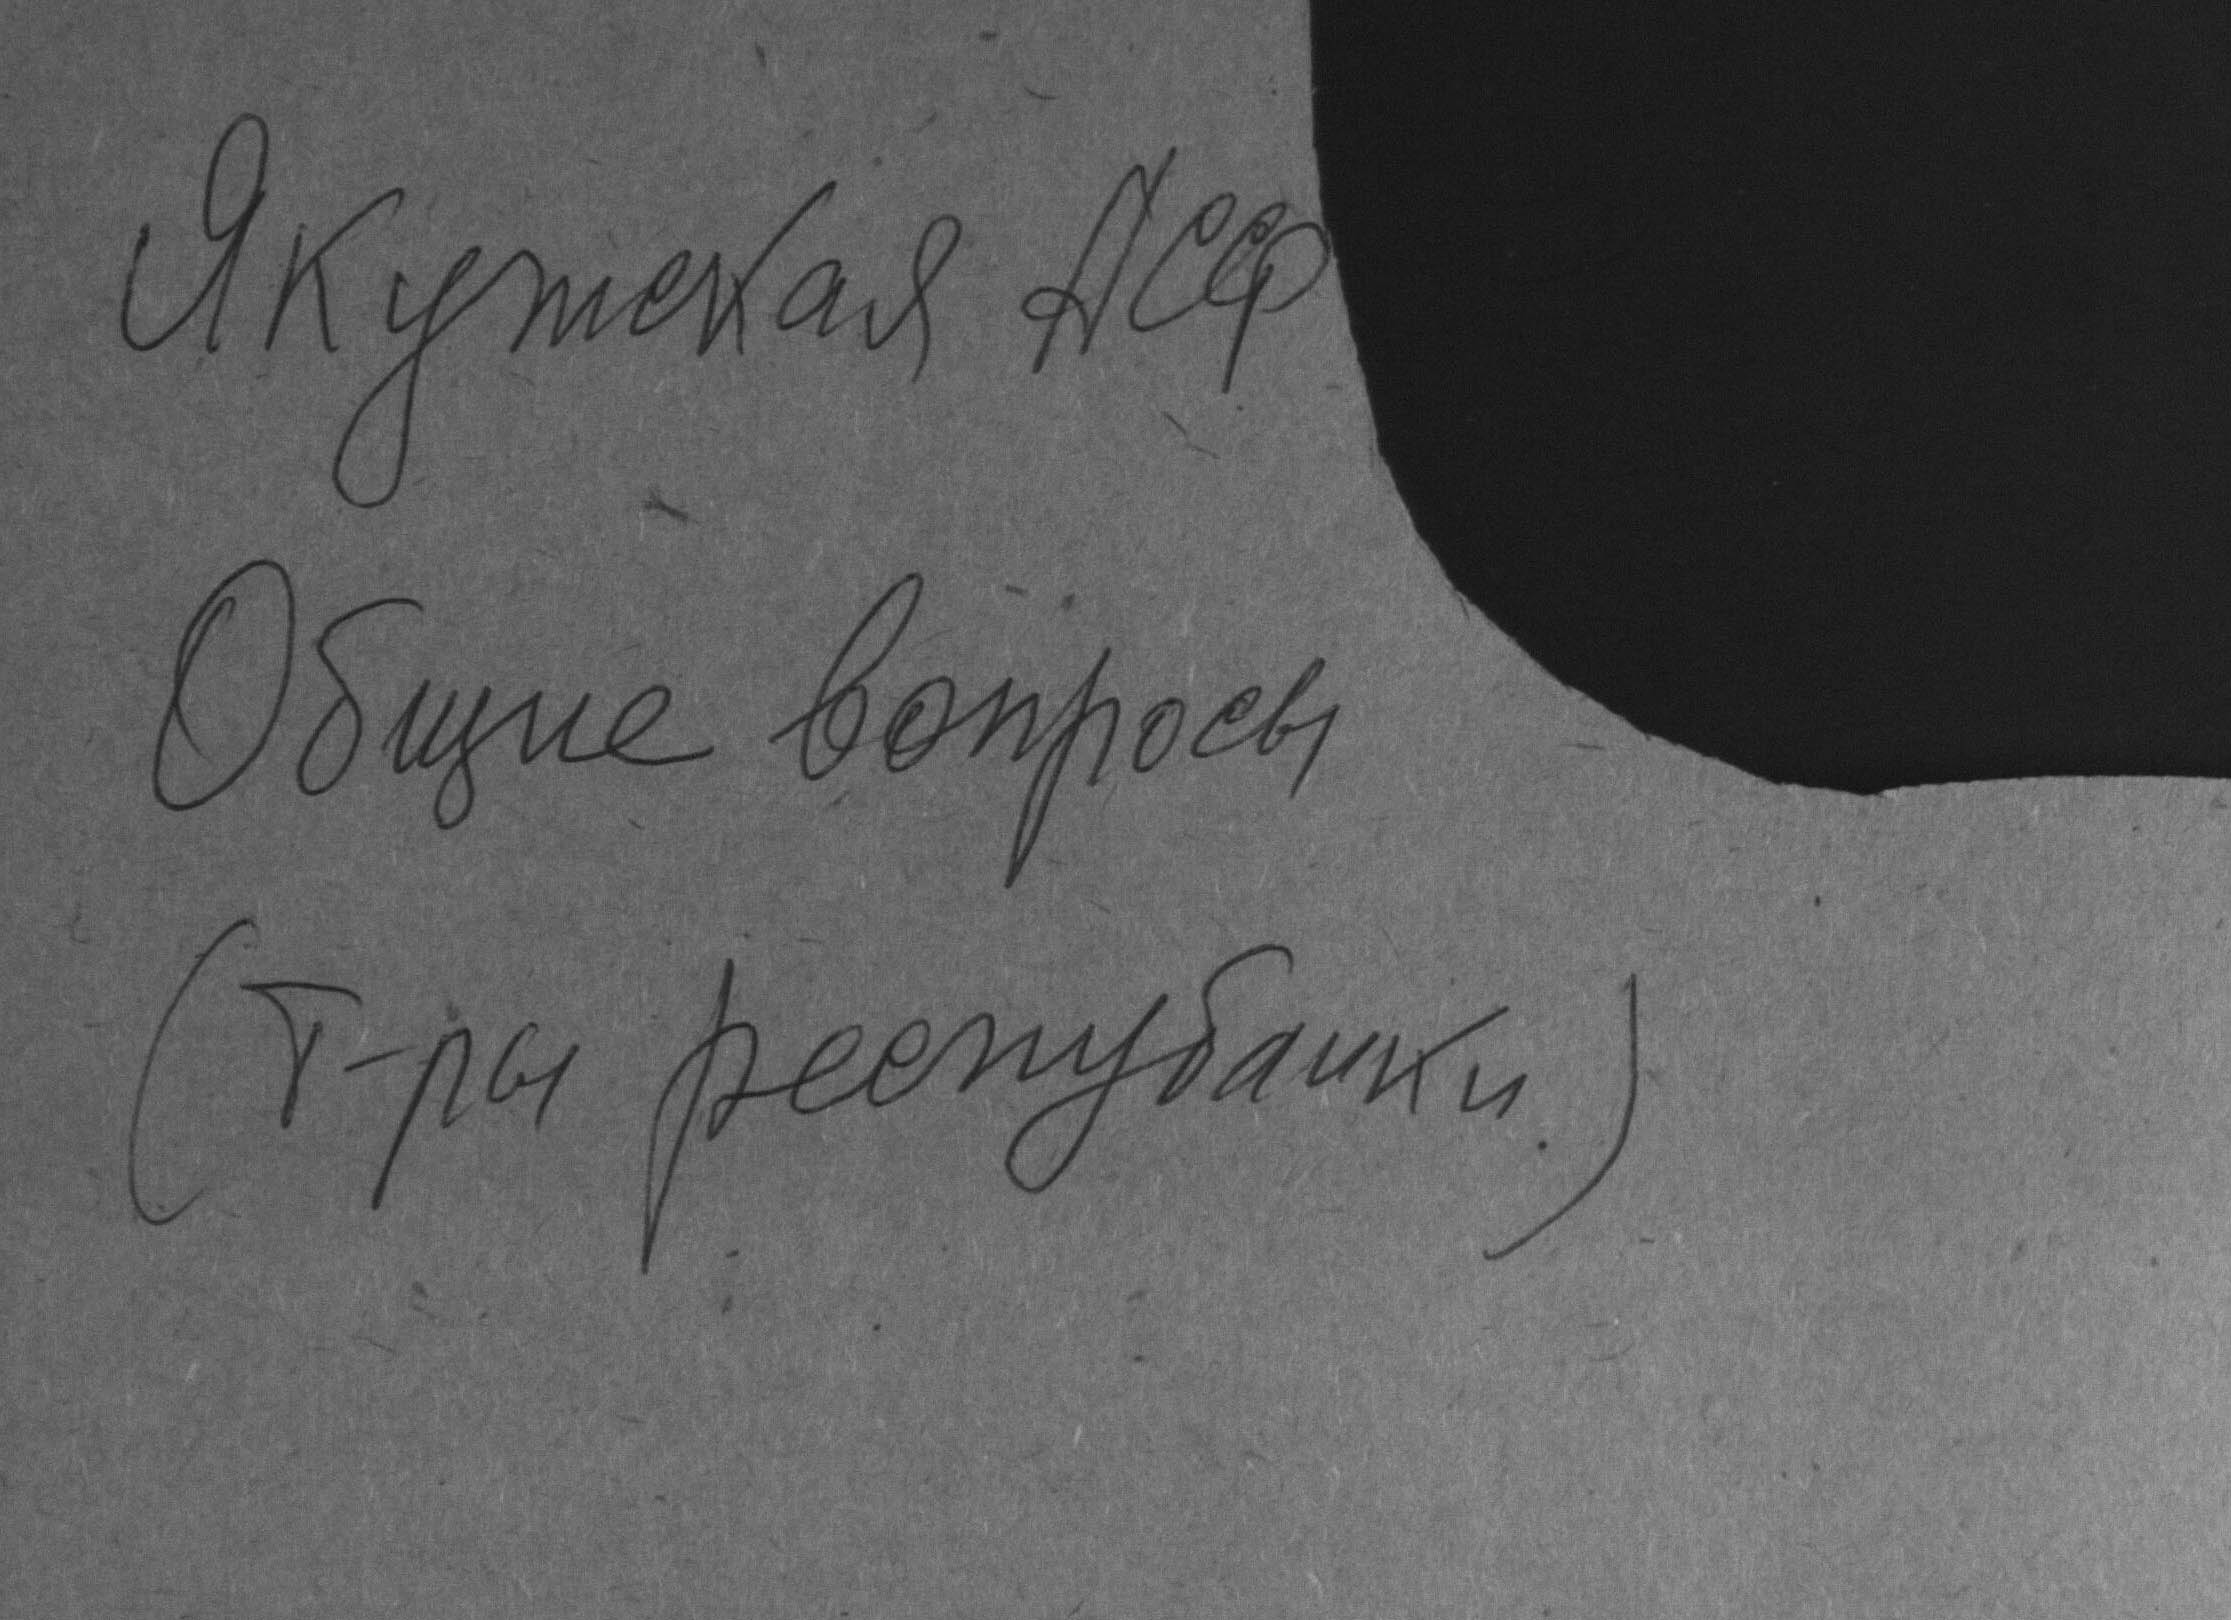 Якутская АССР
Общие вопросы
(т-ры республики)